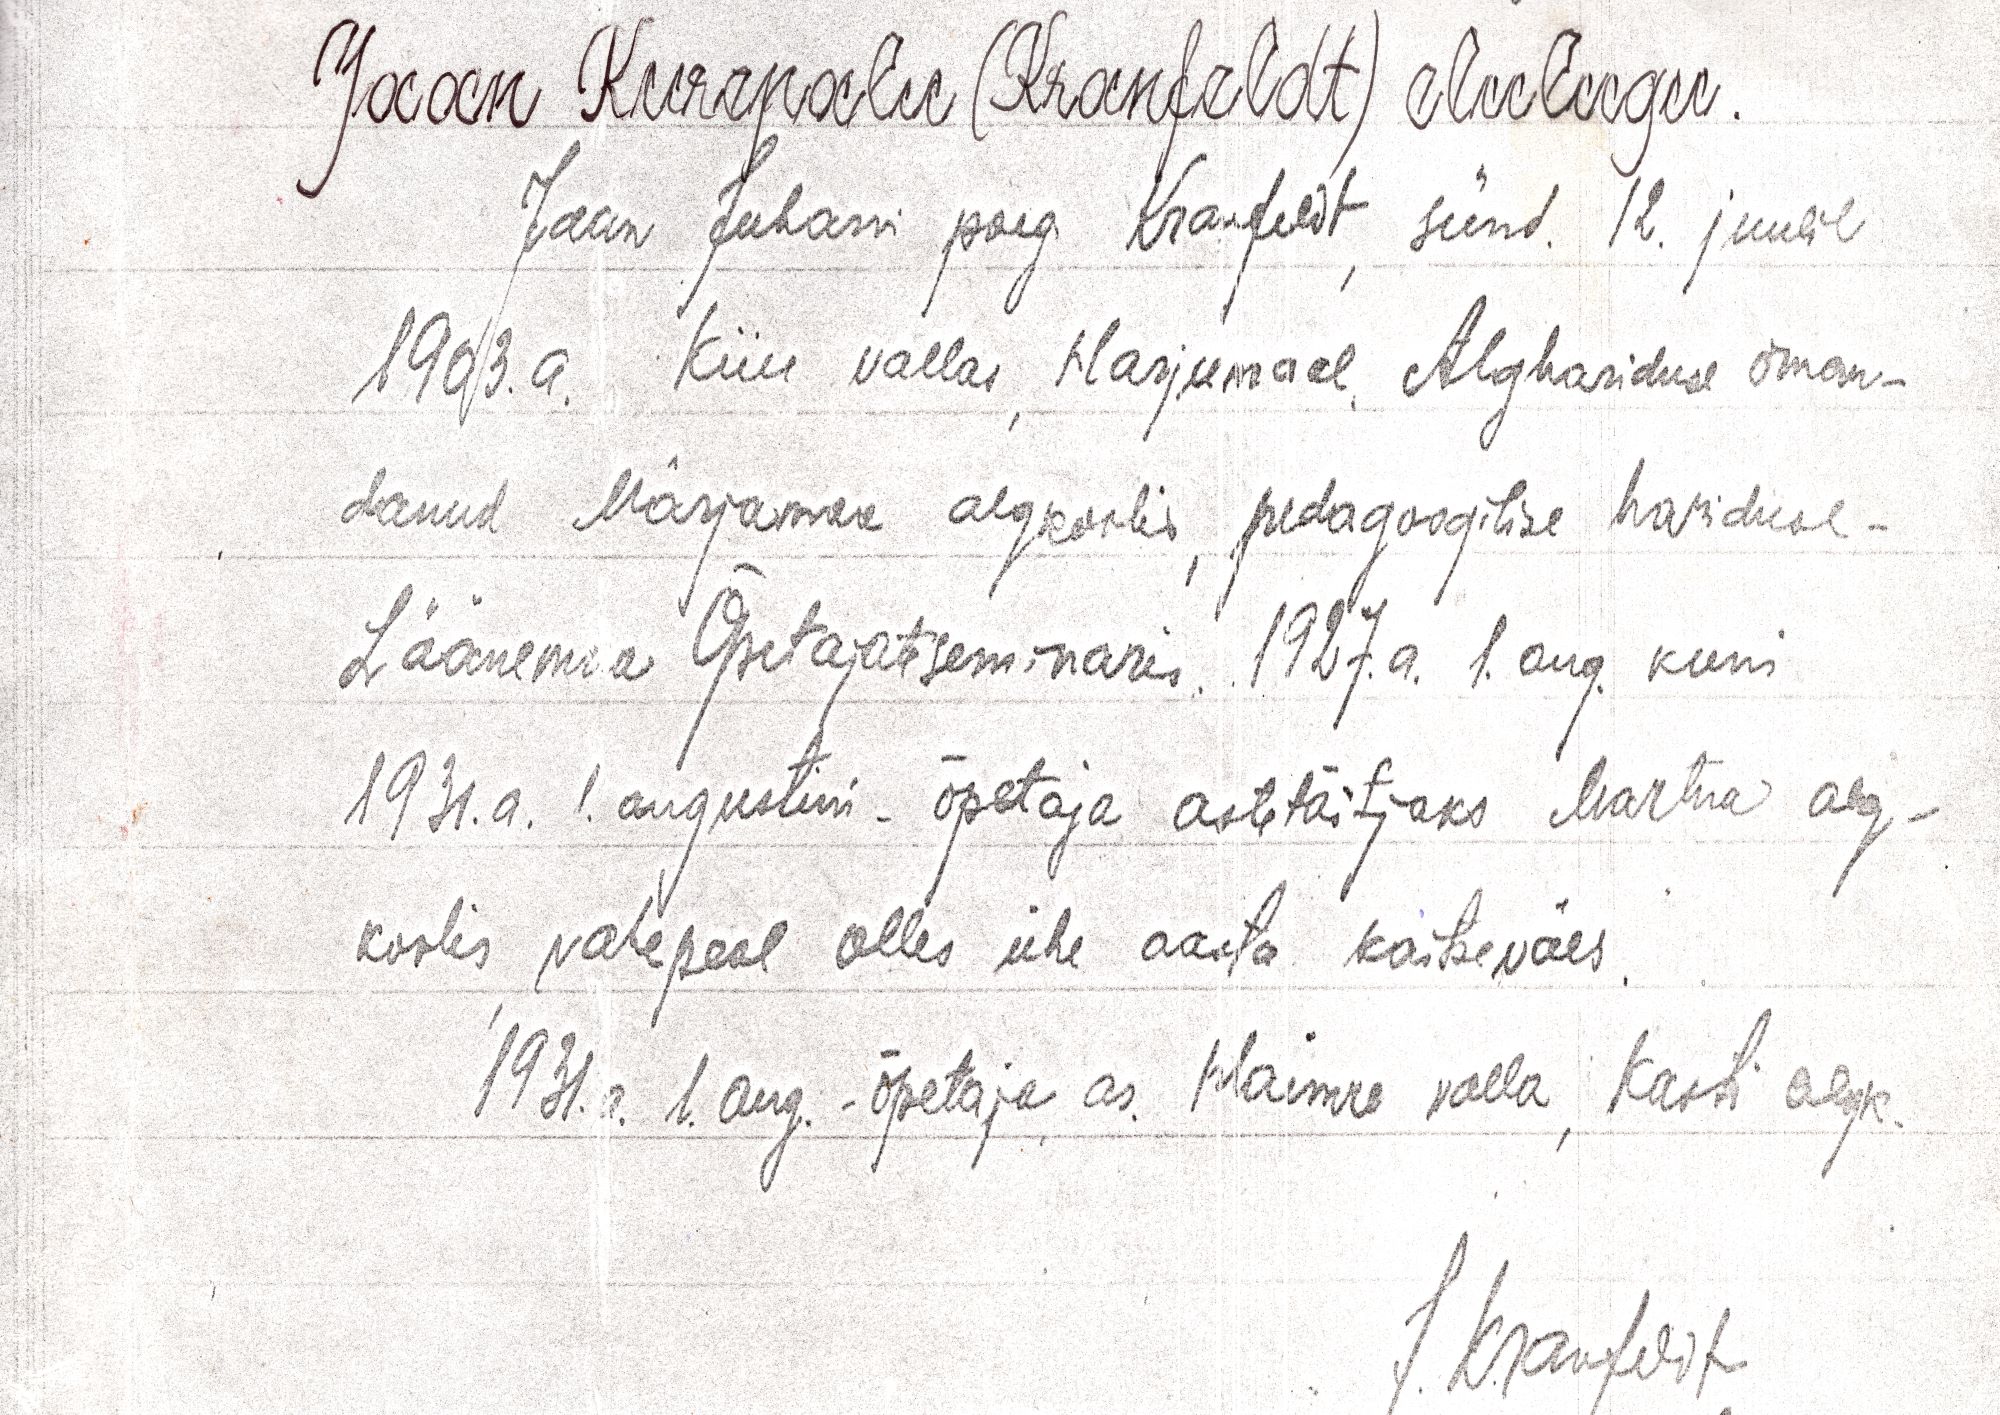 Jaan Kurepalu (Kranfeldt) elulugu.
Jaan Juhani poeg Kranfeldt, sünd. 12. juulil
1903.a. Kiiu vallas, Harjumaal. Alghariduse oman-
danud Märjamaa algkoolis, pedagoogilise hariduse -
Läänemaa Õpetajateseminaris. 1927.a. 1. aug. kuni
1931.a. 1. augustini - õpetaja asetäitjaks Martna alg-
koolis, vahepeal olles ühe aasta kaitseväes.
1931.a. 1. aug. - õpetaja as. Haimre valla, Kasti algk.
J. Kranfeldt